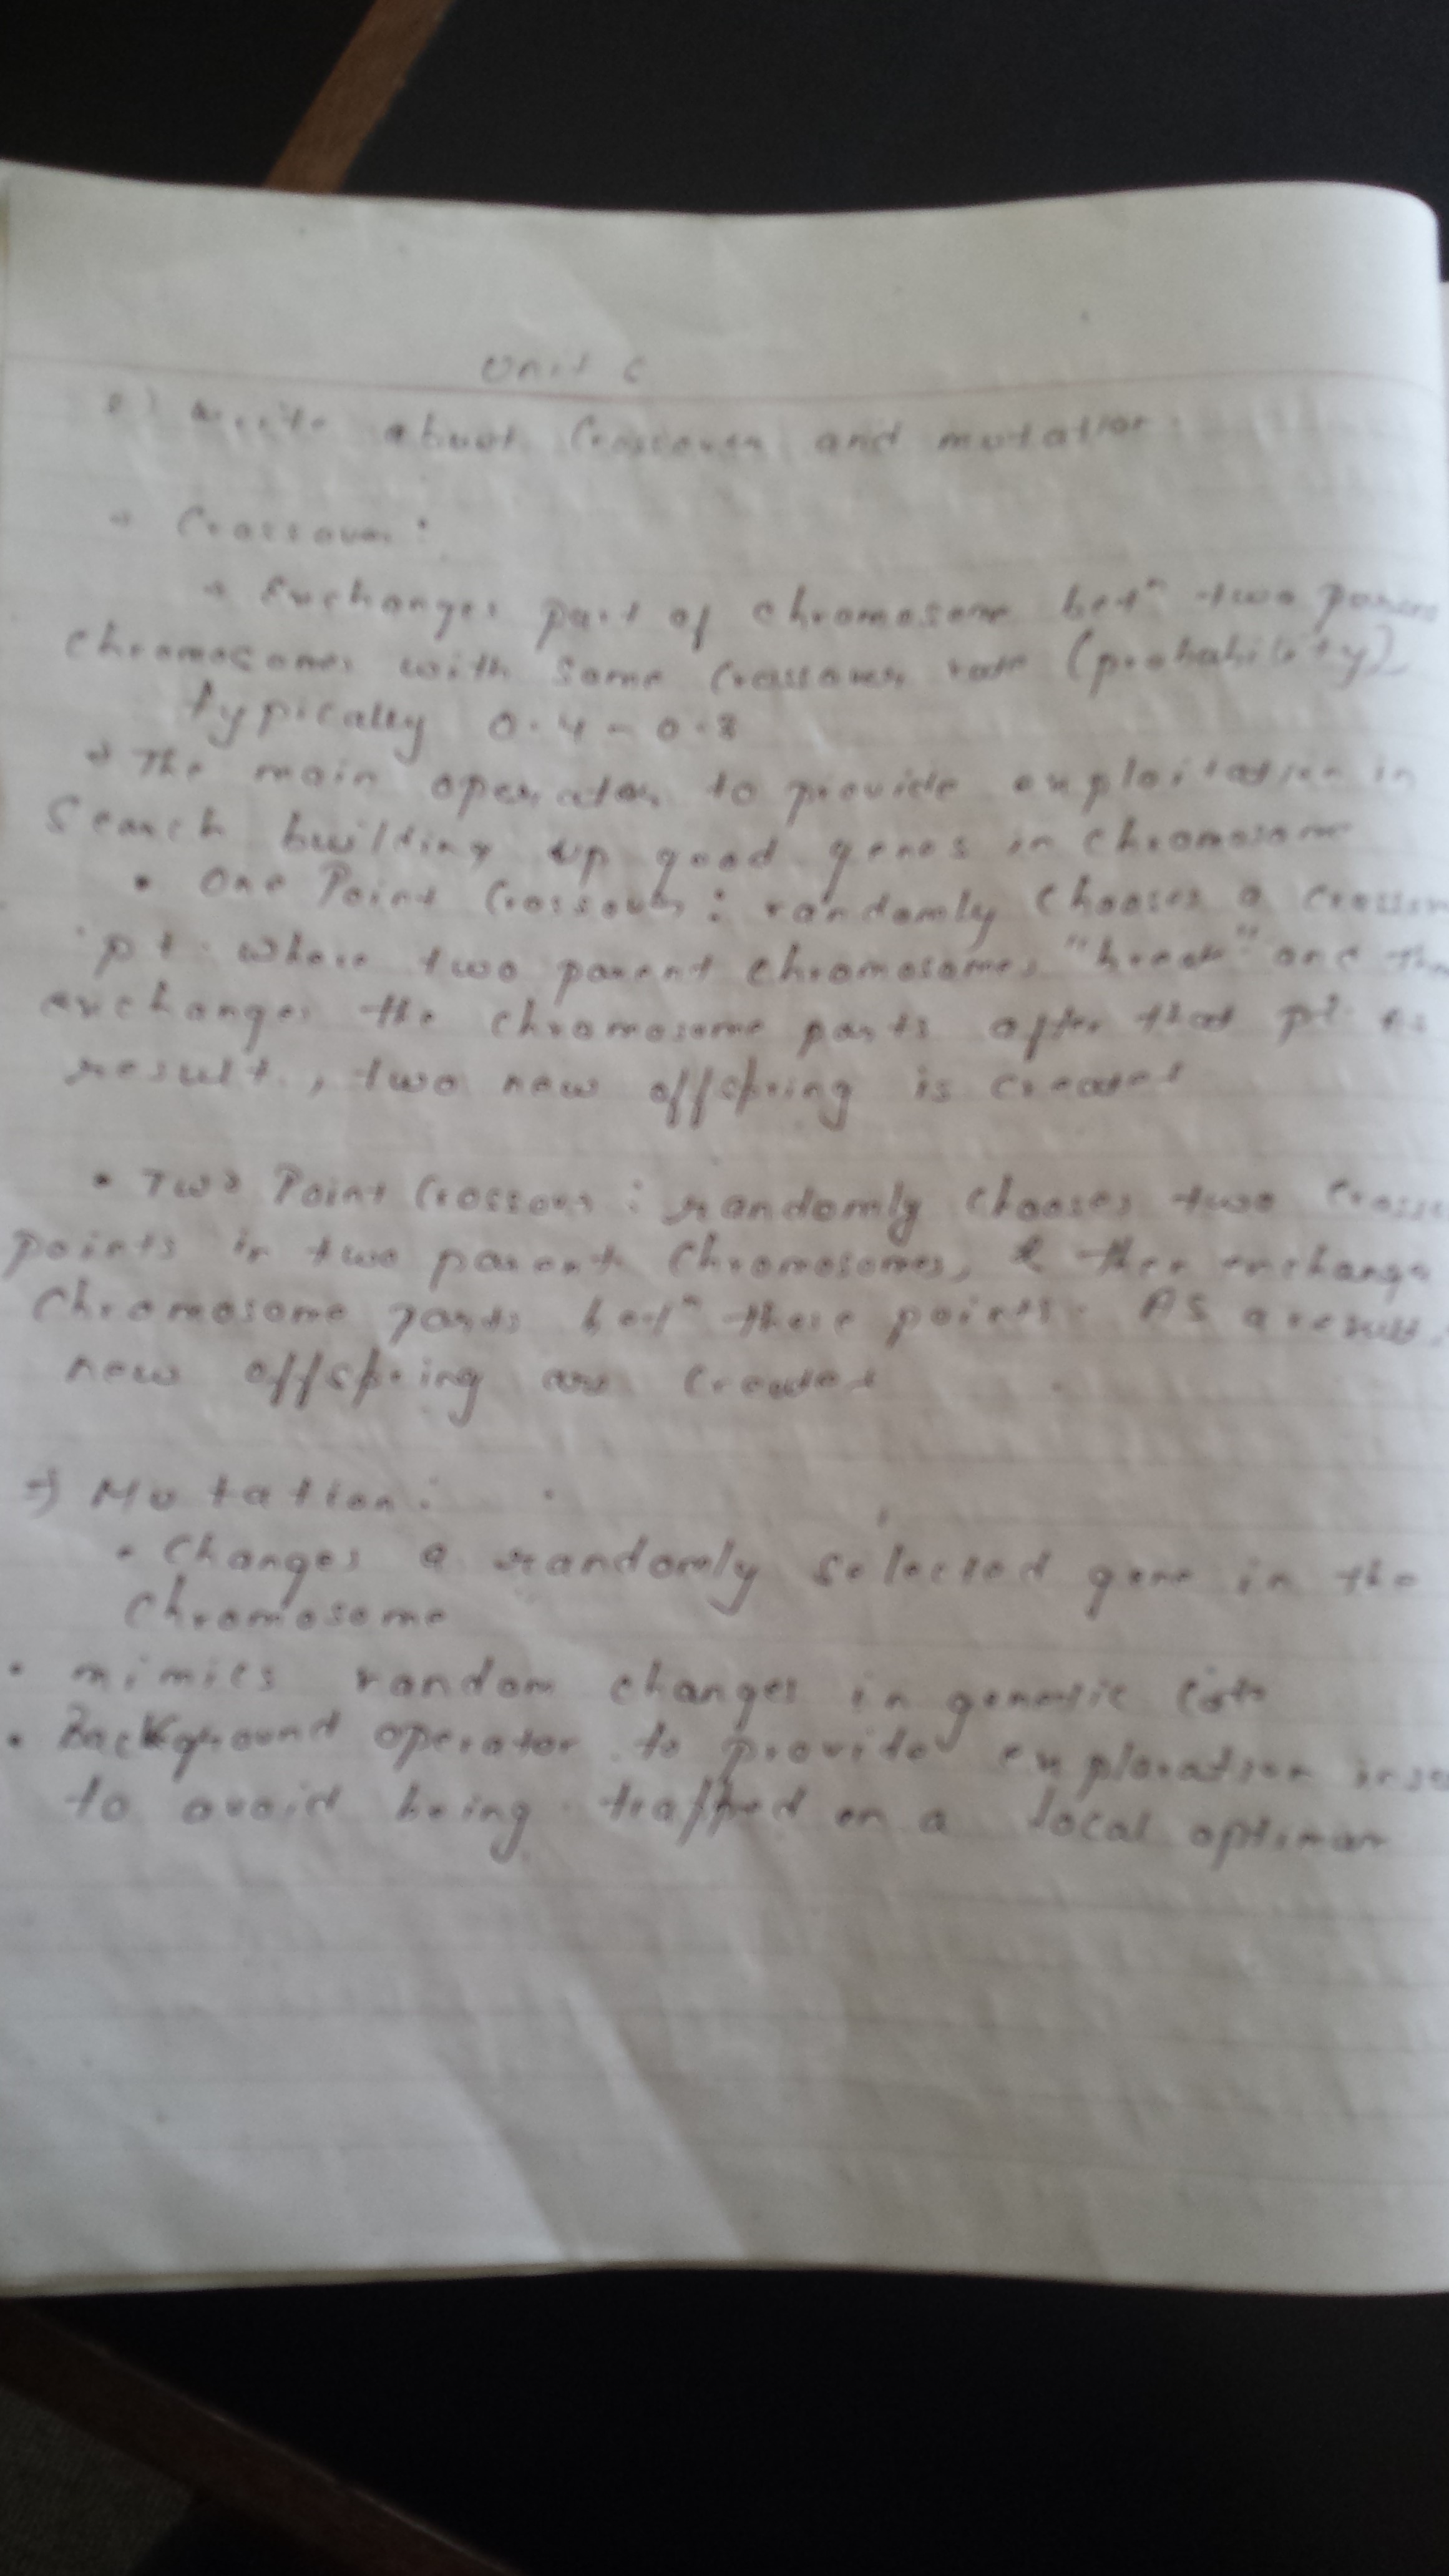 Unit 6
Write about Crossover and mutation.
→ Crossover:
→ Exchanges part of chromosome betn two paren
chromosomes with some crossover rate (probability)
typically 0.4 - 0.8
→ The main operator to provide exploitation in
Search building up good genes in chromosome
• One Point Crossover: randomly chooses a crosso
pt. where two parent chromosomes "break" and the
exchanges the chromosome parts after that pt. As
result, two new offspring is created
• Two Point Crossover: randomly chooses two cross
points in two parent chromosomes, & then exchange
Chromosome parts betn these points. As a result,
new offspring are created
⇒ Mutation:
• Changes a randomly selected gene in the
Chromosome
• mimics random changes in genetic
• Background operator to provide exploration in se
to avoid being trapped on a local optimum